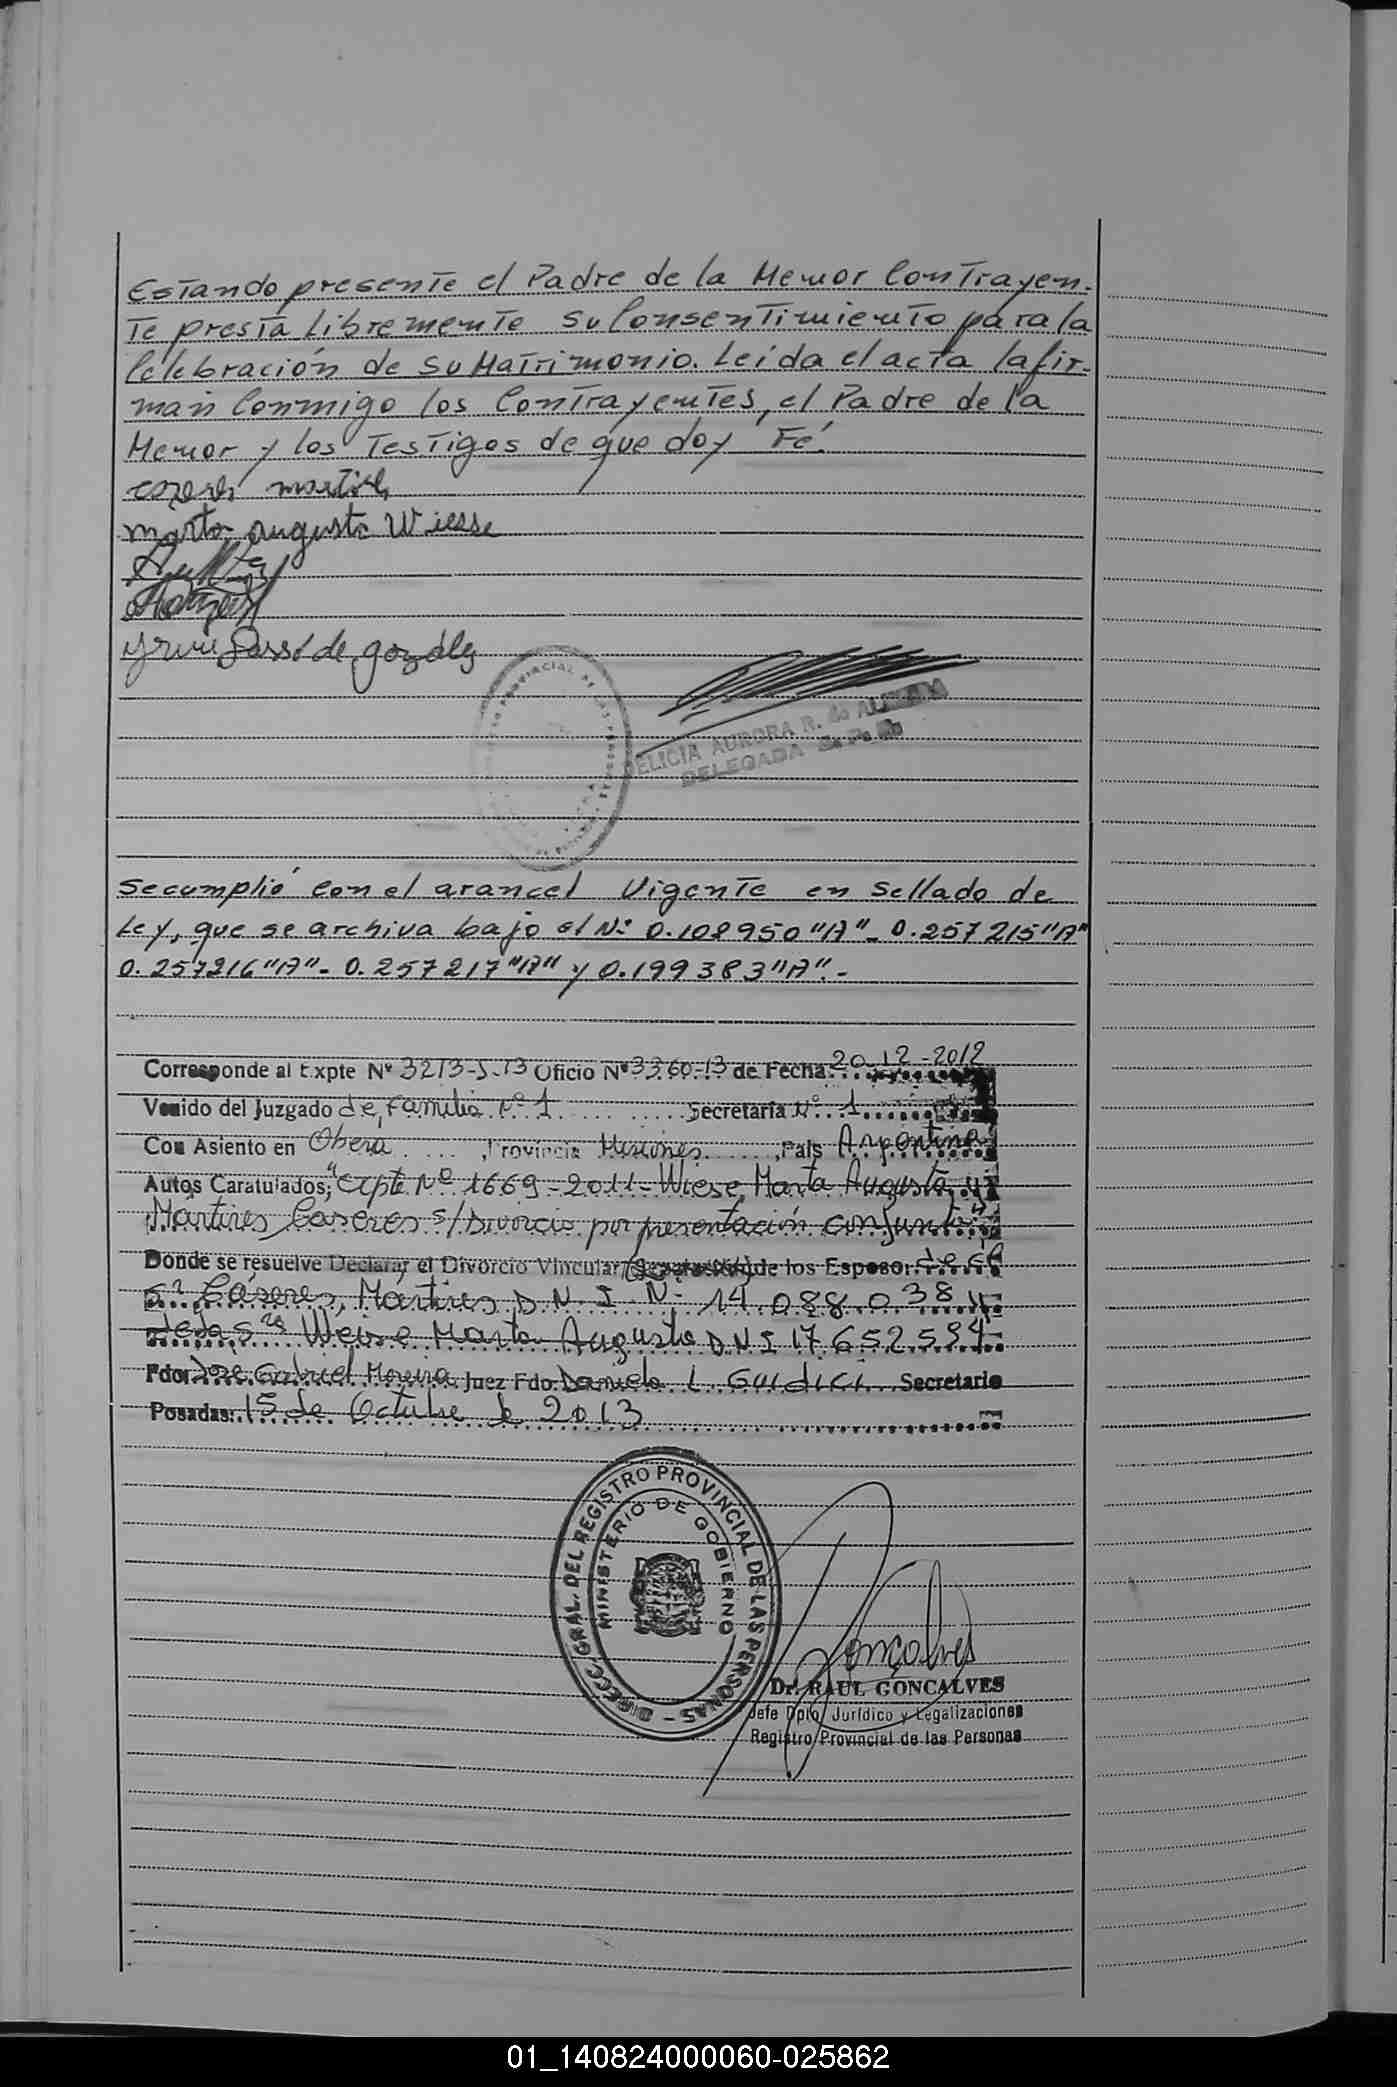 Estando presente el Padre de la Menor Contrayen-
te presta libremente su Consentimiento para la
Celebración de su Matrimonio. Leída el acta la fir-
man Conmigo los Contrayentes, el Padre de la
Menor y los Testigos de que doy Fé.
martires
marta augusta Wiesse
de gozález
PROVINCIAL DE LAS PERSONAS
DELICIA AURORA R. de
DELEGADA
Se cumplió con el arancel Vigente en Sellado de
Ley, que se archiva bajo el Nº 0.108950 "A"- 0.257215 "A"
0.257216 "A"- 0.257217 "A" y 0.199383 "A".-
Corresponde al Expte Nº 3213-J-13 Oficio Nº 3360-13 de Fecha 20-12-2012
Venido del Juzgado de Familia Nº 1 Secretaría Nº 1
Con Asiento en Oberá, Provincia Misiones, País Argentina
Autos Caratulados; "Expte Nº 1669-2011- Wiese, Marta Augusta y
Martires Caseres s/ Divorcio por presentación conjunta"
Donde se resuelve Declarar el Divorcio Vincular de los Esposos
Sr Cáseres, Martires D.N.I. Nº 14.088.038 y
de la Sra Weise Marta Augusta D.N.I 17.652.594
Fdo: Jose Gabriel Moreira Juez Fdo: Daniela L. Guidici Secretario
Posadas: 15 de Octubre de 2013
DIRECC. GRAL. DEL REGISTRO PROVINCIAL DE LAS PERSONAS
MINISTERIO DE GOBIERNO
Goncalves
Dr. RAUL GONCALVES
Jefe Dpto Jurídico y Legalizaciones
Registro Provincial de las Personas
01_140824000060-025862